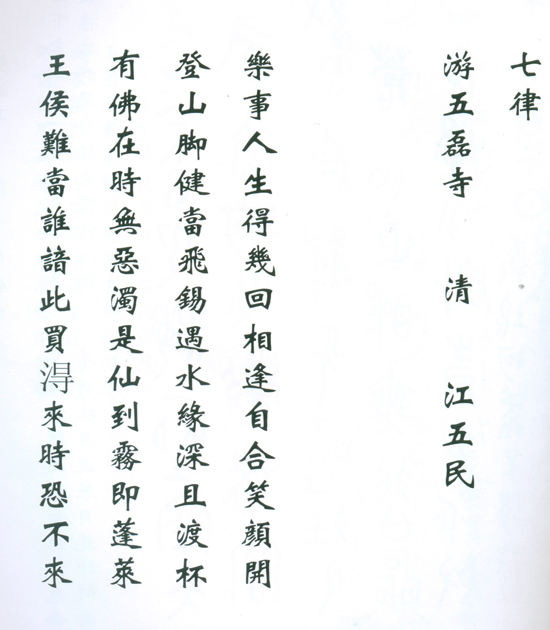 七律
游五磊寺 清 江五民
樂事人生得幾回相逢自合笑顏開
登山脚健當飛錫遇水緣深且渡杯
有佛在時無惡濁是仙到霧即蓬萊
王侯難當誰諳此買淂來時恐不來